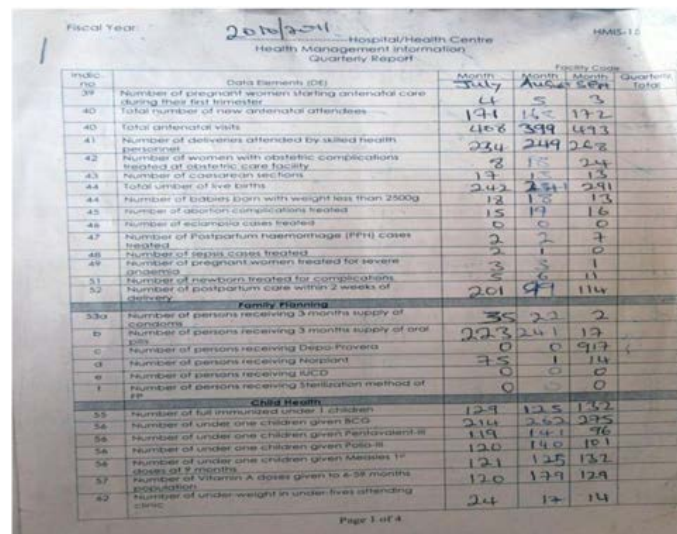 Fiscal Year 2010/2011 HMIS-15
Hospital/Health Centre
Health Management Information
Quarterly Report
Facility Code
Indic. no Data Elements (DE) Month July Month August Month Sept Quarterly Total
39 Number of pregnant women starting antenatal care during their first trimester 4 5 3
40 Total number of new antenatal attendees 171 172
40 Total antenatal visits 408 399 493
41 Number of deliveries attended by skilled health personnel 234 249 268
42 Number of women with obstetric complications treated at obstetric care facility 8 18 24
43 Number of caesarean sections 17 13 13
44 Total umber of live births 242 291
44 Number of babies born with weight less than 2500g 18 18 13
45 Number of abortion complications treated 15 19 16
46 Number of eclampsia cases treated 0 0 0
47 Number of Postpartum haemorrhage (PPH) cases treated 2 2 7
48 Number of sepsis cases treated 2 1 0
49 Number of pregnant women treated for severe anaemia 3 3 1
51 Number of newborn treated for complications 5 6 11
52 Number of postpartum care within 2 weeks of delivery 201 99 114
Family Planning
53a Number of persons receiving 3 months supply of condoms 35 22 2
b Number of persons receiving 3 months supply of oral pills 223 241 17
c Number of persons receiving Depo-Provera 0 0 917
d Number of persons receiving Norplant 75 1 14
e Number of persons receiving IUCD 0 0 0
f Number of persons receiving Sterilization method of FP 0 0 0
Child Health
55 Number of full immunized under 1 children 129 125 132
56 Number of under one children given BCG 214 262 275
56 Number of under one children given Pentavalent-III 119 141 96
56 Number of under one children given Polio-III 120 140 101
56 Number of under one children given Measles 1st doses at 9 months 121 125 132
57 Number of Vitamin A doses given to 6-59 months population 120 179 129
62 Number of under-weight in under-fives attending clinic 24 17 14
Page 1 of 4